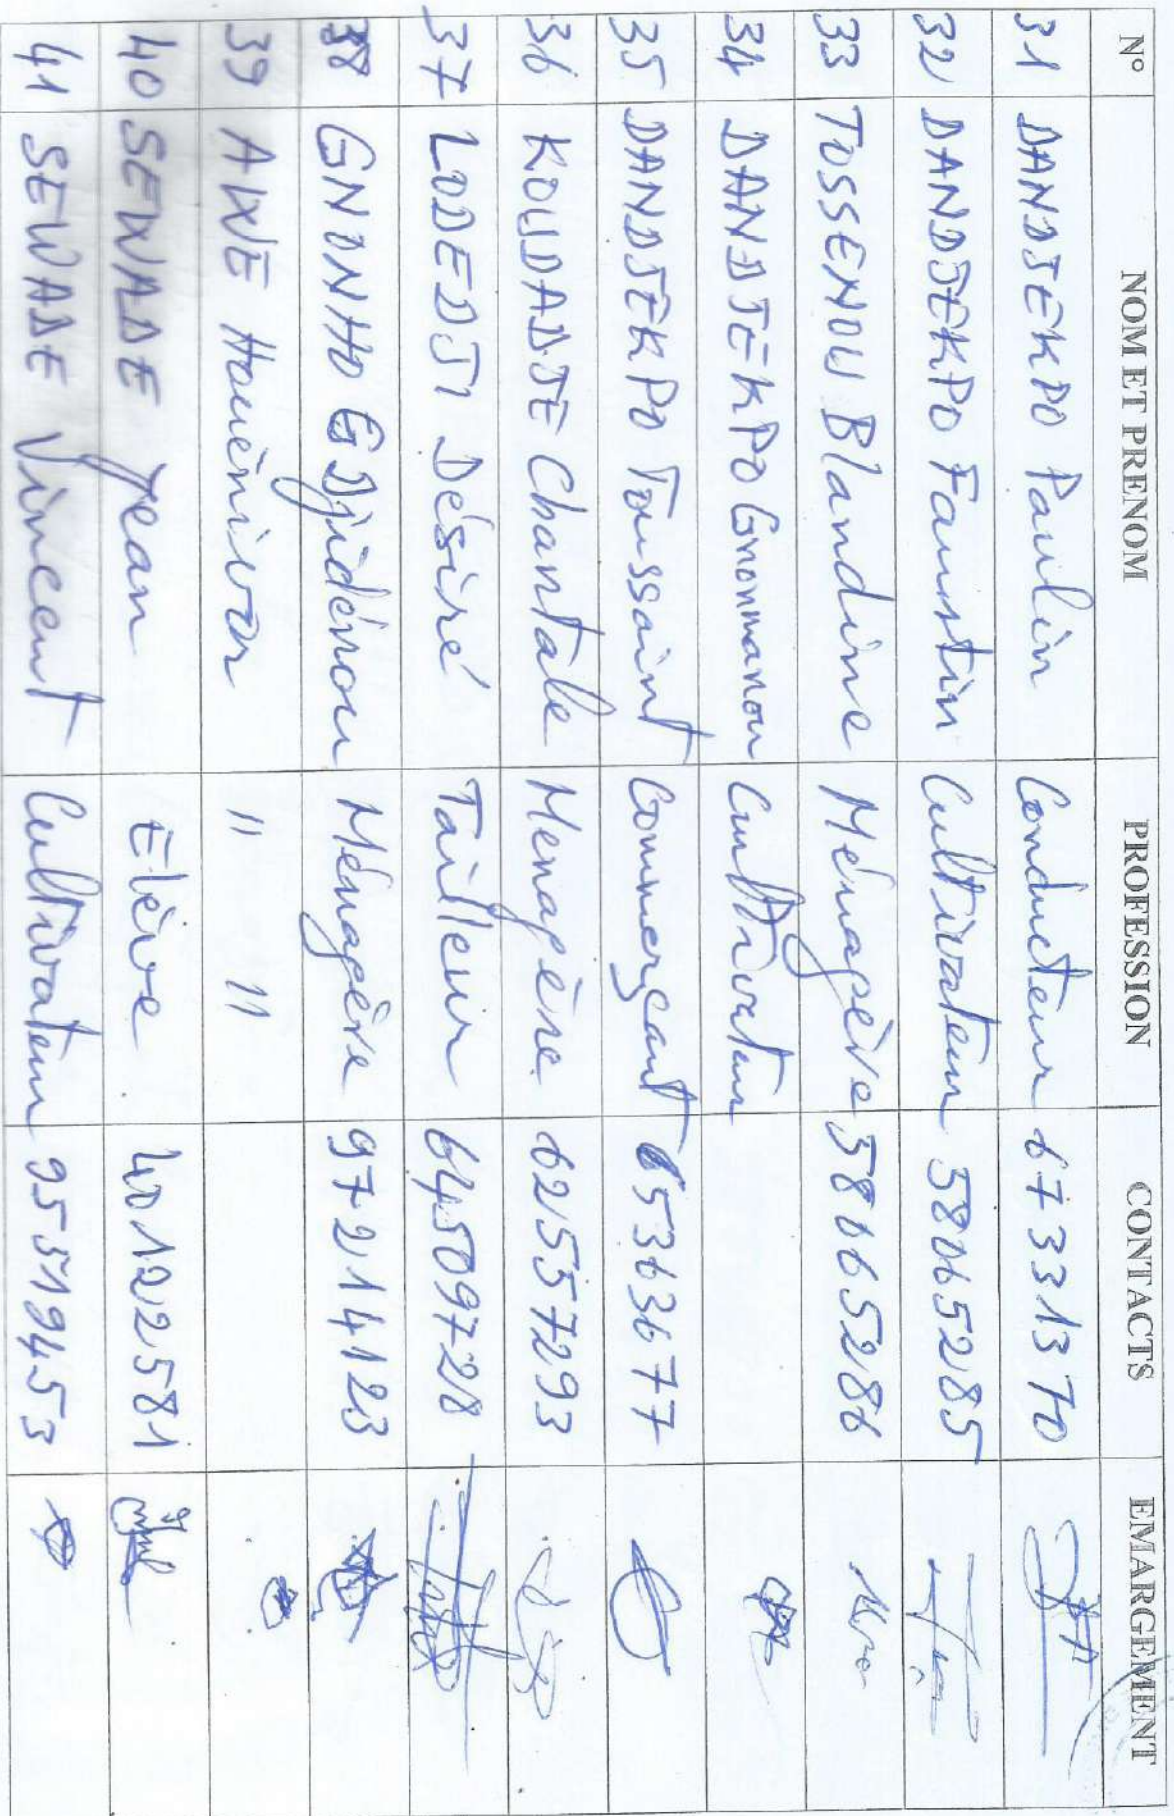 N° NOM ET PRENOM PROFESSION CONTACTS EMARGEMENT
31 DANDJEKPO Paulin Conducteur 67331370
32 DANDJEKPO Faustin Cultivateur 58065285
33 TOSSENOU Blandine Ménagère 58065286
34 DANDJEKPO Gnonmanou Cultivateur
35 DANDJEKPO Toussaint Commerçant 65363677
36 KOUDADJE Chantale Menagère 62557293
37 LODEDJI Désiré Tailleur 64509728
38 GNONHO GDjidénou Ménagère 97214123
39 AIWE " "
40 SEWADE Jean Elève 40122581
41 SEWADE Vincent Cultivateur 95519453